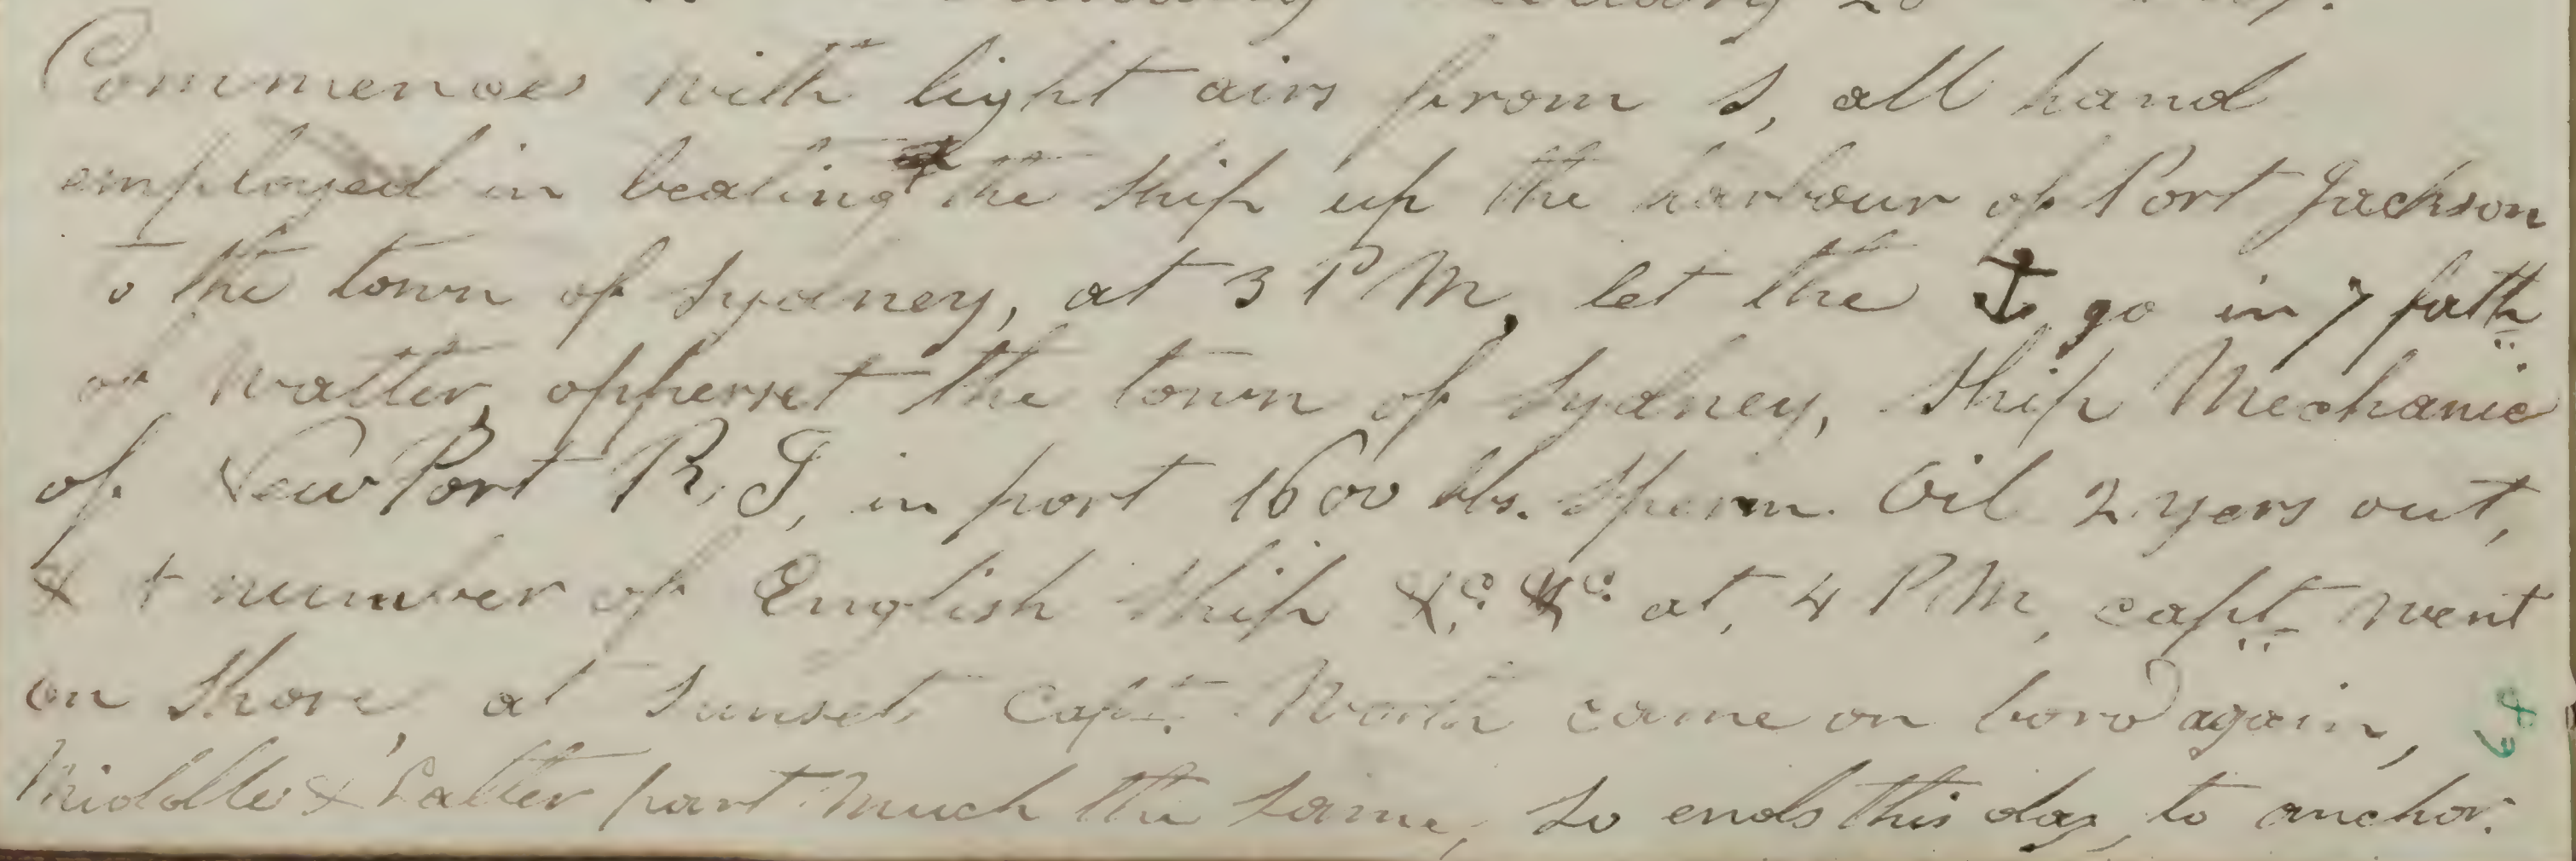 Commences with light airs from S, all hand
employed in beating the ship up the harbour of Port Jackson
to the town of Sydney, at 3 PM, let the ⚓ go in 7 fath
of watter, opperset the town of Sydney, Ship Mechanic
of New Port R, I, in port 1600 bbs. Sperm. Oil 2 yers out,
& + number of English Ship &c. &c. at, 4 PM, capt. went
on Shore, at Sunset, Capt. came on bord again,
Middle & Latter part Much the Same, So ends this day, to anchor.